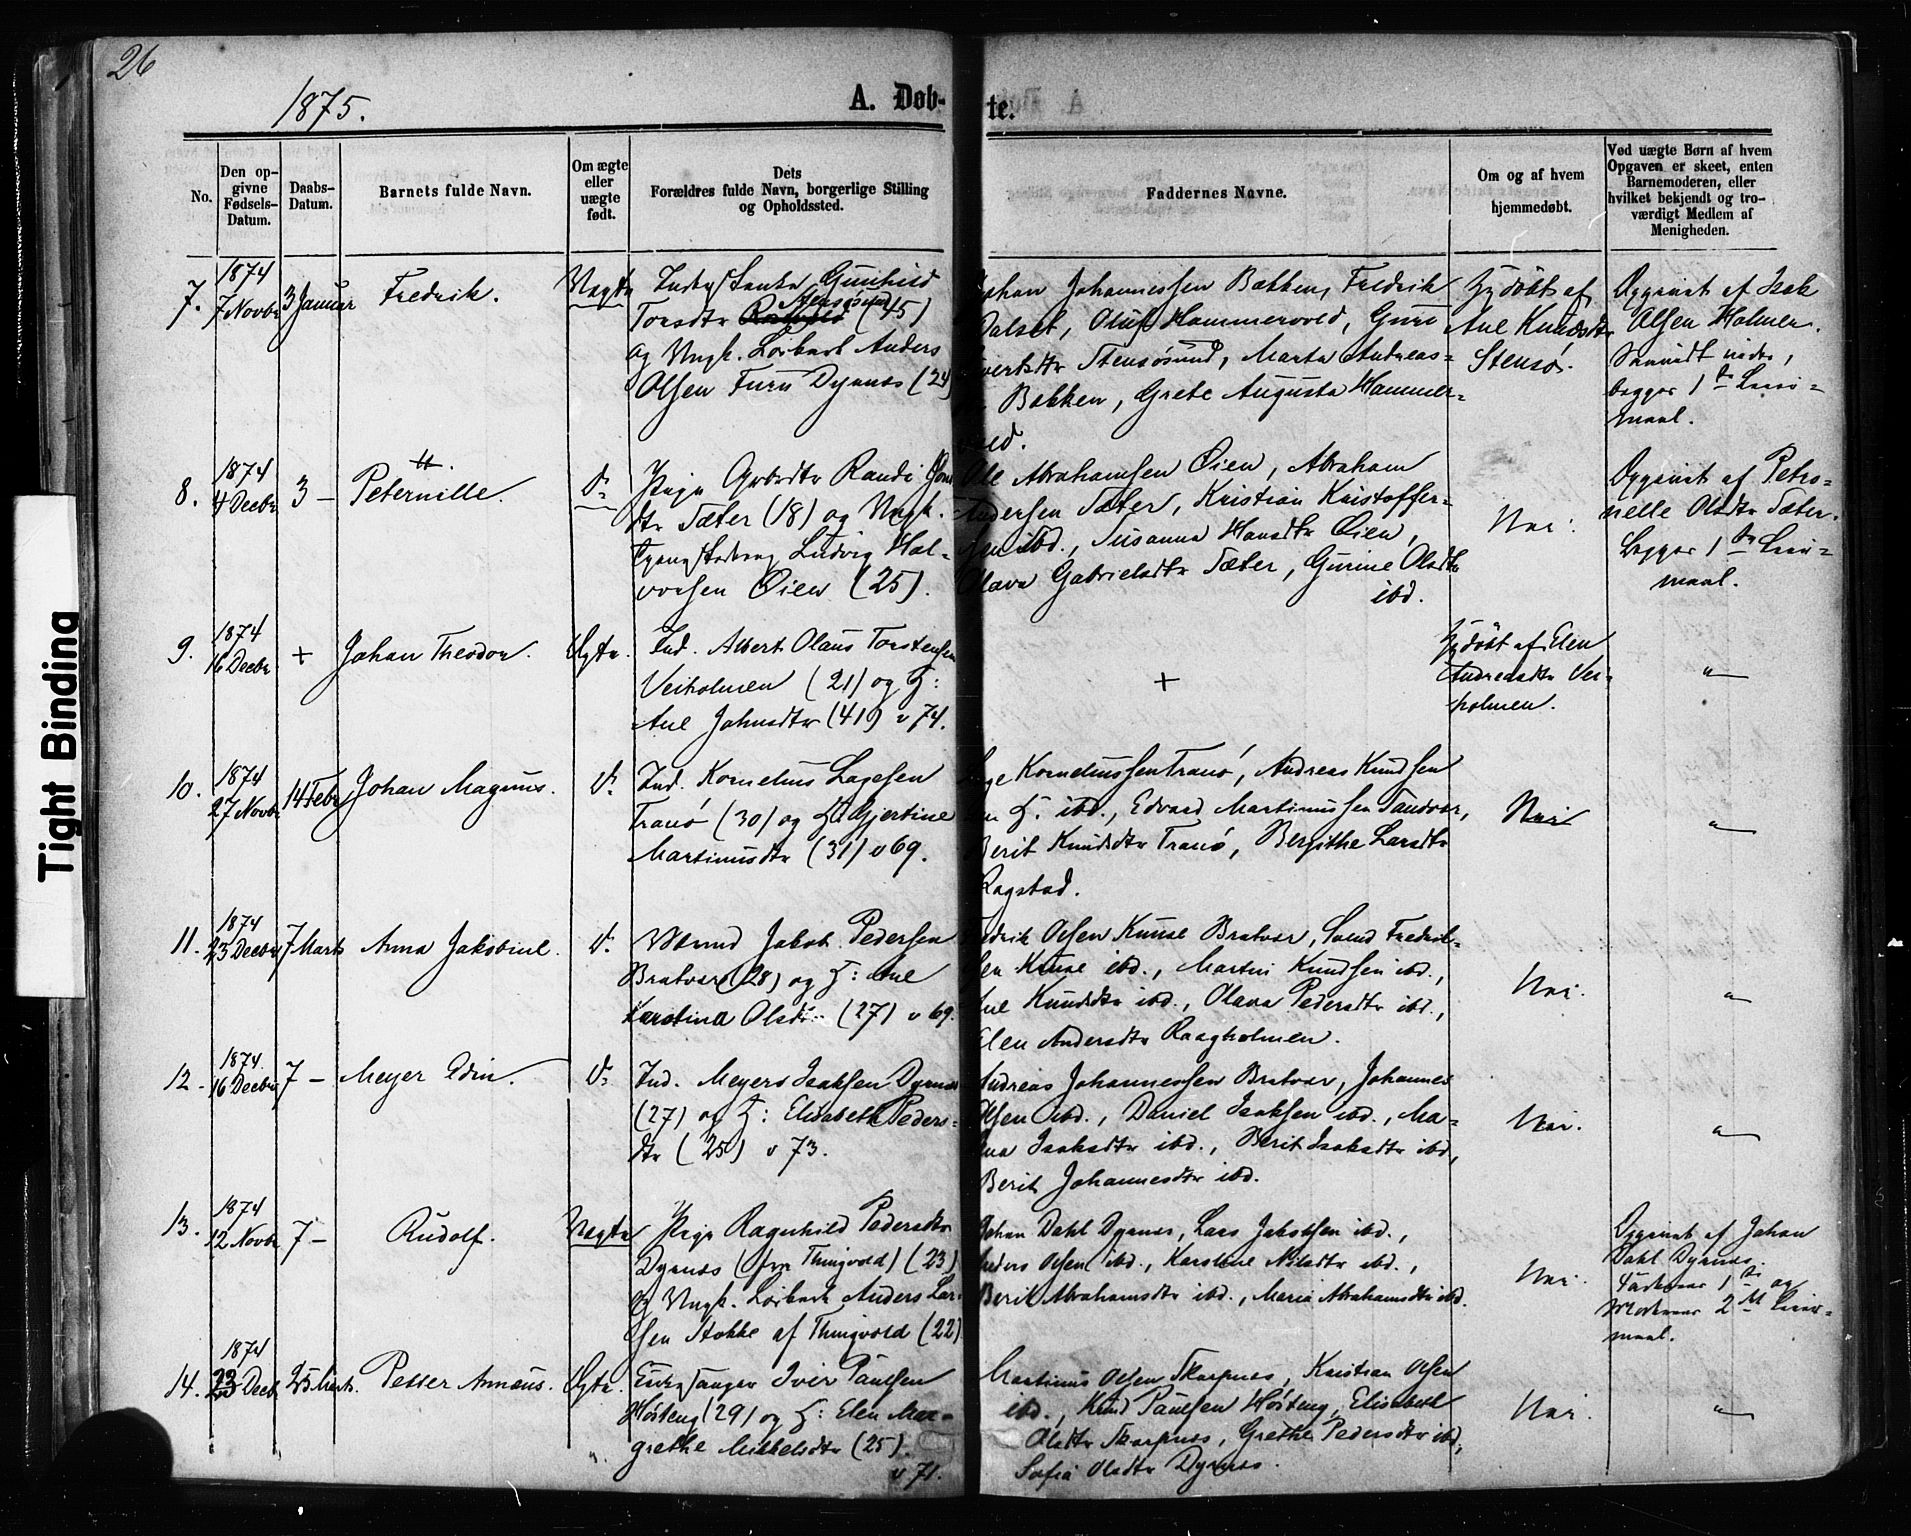 26
1875.
A. Døb- te.
No.
Den op-
givne
Fødsels-
Datum.
Daabs-
Datum.
Barnets fulde Navn.
Om ægte
eller
uægte
født.
Dets
Forældres fulde Navn, borgerlige Stilling
og Opholdssted.
Faddernes Navne.
Om og af hvem
hjemmedøbt.
Ved uægte Børn af hvem
Opgaven er skeet, enten
Barnemoderen, eller
hvilket bekjendt og tro-
værdigt Medlem af
Menigheden.
7.
1874
7 Novbr
3 Januar
Fredrik.
Uægte
Gunhild
Torsdtr Stensøsund (45)
og Ungk. Anders
Olsen Furu Dyrnes (24)
Johan Johannessen Bakken, Fredrik
Dalset, Oluf Hammervold, Guri
Stensøsund, Marta Andreas-
Bakken, Grete Augusta Hammer-
vold.
Hjdöbt af
Ane Knudsdtr
Stensø.
Opgivet af Isak
Olsen Holmen.
begges 1ste Leier-
maal.
8.
1874
4 Decbr
3 -
Peternille.
do
Pige Randi
dtr Sæter (18) og Ungk.
Ludvig Hal-
vorsen Øien (25).
Ole Abrahamsen Øien, Abraham
Andersen Sæter, Kristian Kristoffer-
sen ibd., Susanna Hansdtr Øien,
Olava Gabrielsdtr Sæter, Gurine Olsdtr
ibd.
Nei.
Opgivet af Petro-
nelle Olsdtr Sæter.
Begges 1ste Leier-
maal.
9.
1874
16 Decbr
+
Johan Theodor.
Ægte.
Ind. Albert Olaus Torstensen
Veiholmen (21) og H:
Ane Johnsdtr (41) v 74.
+
Hjdöbt af Elen
Andreasdtr Vei-
holmen.
"
10.
1874
27 Novbr
14 Febr
Johan Magnus.
do
Ind. Kornelius Lagesen
Tranö (30) og H: Gjertine
Martinusdtr (31) v 69.
Lage Korneliussen Tranö, Andreas Knudsen
H. ibd., Edvard Martinussen Sandvær,
Berit Knudsdtr Tranö, Bergithe Larsdtr
Ragstad.
Nei
"
11.
1874
23 Decbr
7 Marts
Anna Jakobine.
do
Jakob Pedersen
Bratvær (28) og H: Ane
Karstina Olsdtr (27) v 69.
Fredrik Olsen Knuse Bratvær, Fredrik-
sen Knuse ibd., Martin Knudsen ibd.,
Ane Knudsdtr ibd., Olava Pedersdtr ibd.,
Elen Andersdtr Raagholmen.
Nei.
"
12.
1874.
16 Decbr
7 -
Meyer Edin.
do
Ind. Meyer Isaksen Dyrnes
(27) og H: Elisabeth Peders-
dtr (25) v 73.
Andreas Johannessen Bratvær, Johannes
Olsen ibd., Daniel Isaksen ibd., Ma-
Isaksdtr ibd., Berit Isaksdtr ibd,
Berit Johannesdtr ibd.
Nei.
"
13.
1874
12 Novbr
7 -
Rudolf.
Uægte
Pige Ragnhild Pedersdtr
Dyrnes (fra Thingvold) (23)
og Ungk. Anders Lar-
sen Stokke af Thingvold (22)
Johan Dahl Dyrnes, Lars Jakobsen ibd.,
Peders Olsen ibd., Karoline Nilsdtr ibd.,
Berit Abrahamsdtr ibd., Maria Abrahamsdtr ibd.
Nei.
Opgivet af Johan
Dahl Dyrnes.
Faderens 1ste og
Moderens 2det Leier-
maal.
14.
1874
23 Decb
25 Marts.
Petter Arnæus.
Ægte.
Iver Paulsen
Høsteng (29) og H: Elen Mar-
grethe Mikkelsdtr (25).
v 71.
Martinus Olsen Skarpnes, Kristian Olsen
ibd., Knud Paulsen Høsteng, Elisabeth
Olsdtr Skarpnes, Grethe Pedersdtr ibd,
Sofia Olsdtr Dyrnes.
Nei.
"
Tight Binding